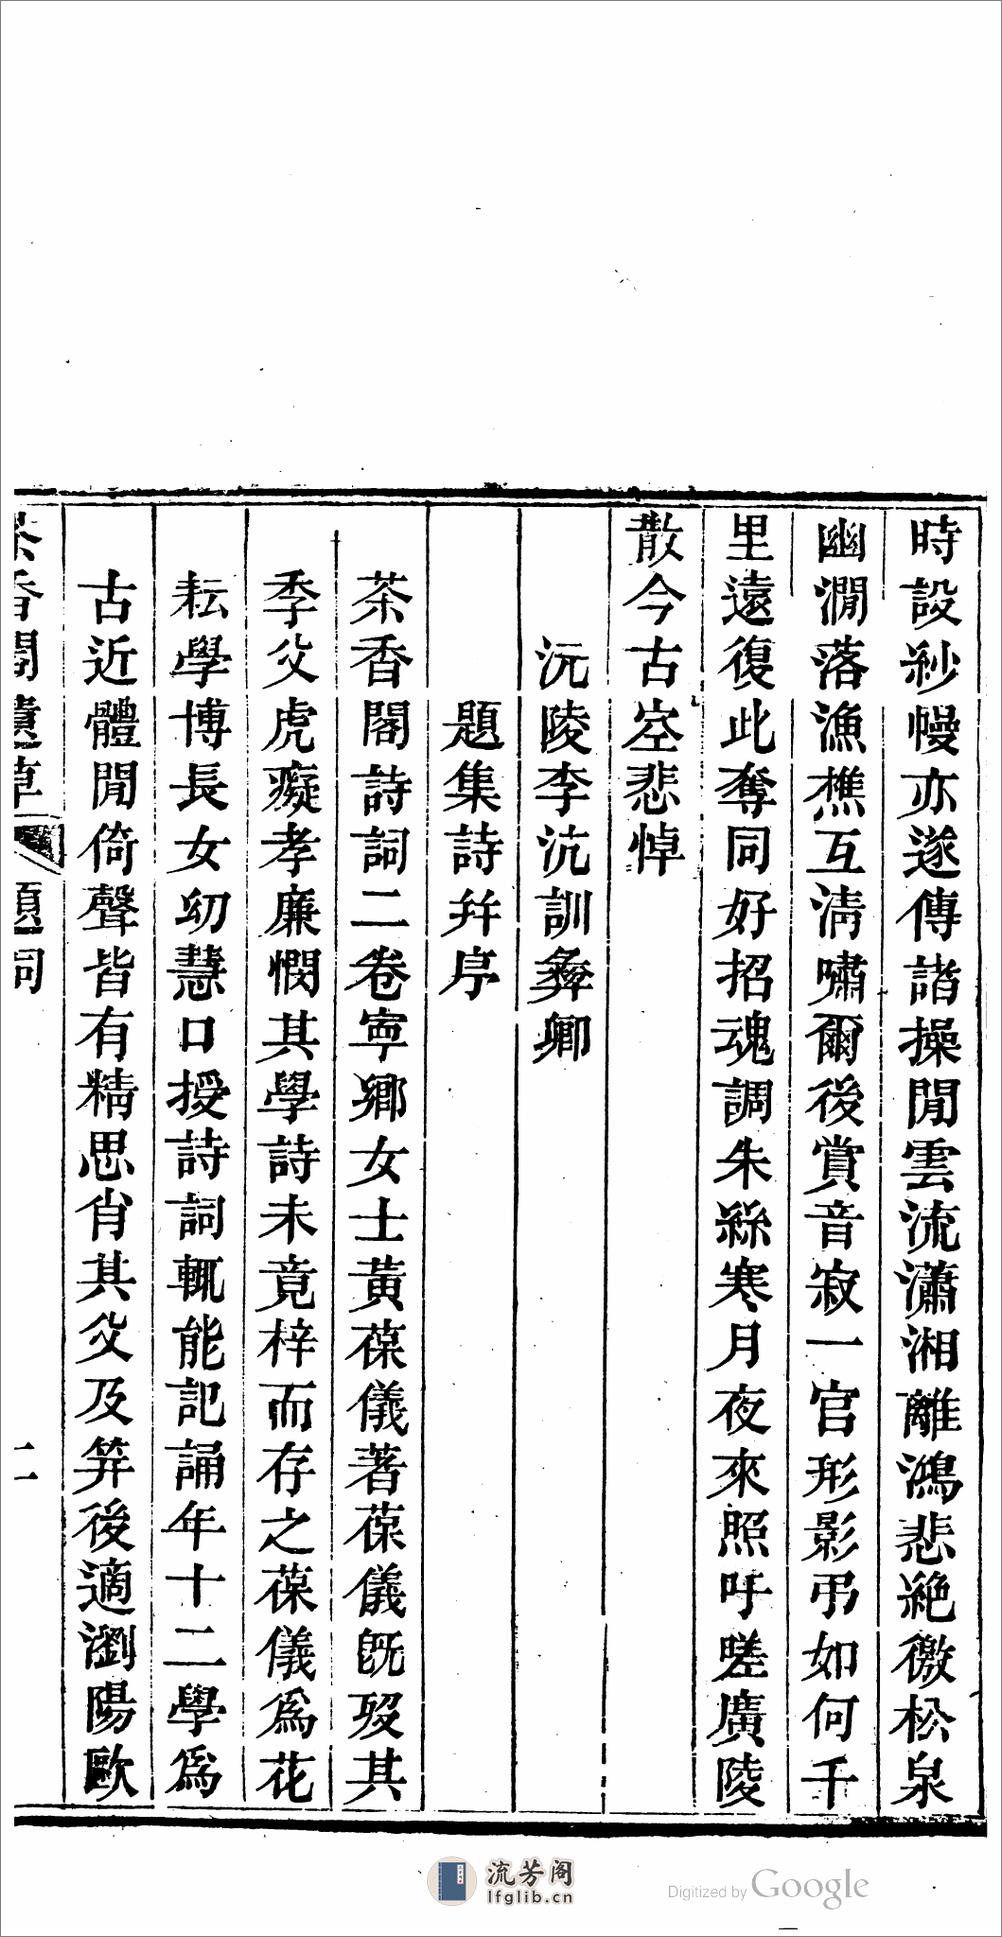 時設紗幔亦遂傳諧操閒雲流瀟湘離鴻悲絶徽松泉
幽澗落漁樵互淸嘯爾後賞音寂一官形影弔如何千
里遠復此奪同好招魂調朱絲寒月夜來照吁嗟廣陵
散今古空悲悼
沅陵李沆訓彝卿
題集詩幷序
茶香閣詩詞二卷寧鄉女士黃葆儀著葆儀旣歿其
季父虎癡孝廉憫其學詩未竟梓而存之葆儀爲花
耘學博長女幼慧口授詩詞輒能記誦年十二學爲
古近體閒倚聲皆有精思肖其父及笄後適瀏陽歐
茶香閣遺草 題詞 二
流芳阁
lfglib.cn
Digitized by Google